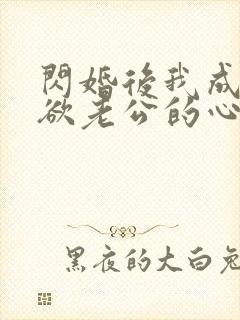 閃婚後我成
欲老公的心
黑夜的大白兔